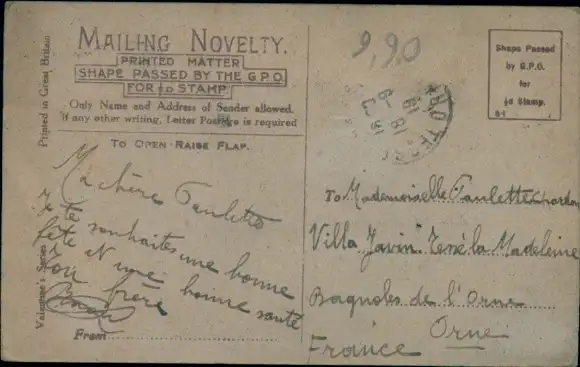 Printed in Great Britain
Valentine's Series
MAILING NOVELTY.
PRINTED MATTER
SHAPE PASSED BY THE G.P.O.
FOR ½D STAMP.
Only Name and Address of Sender allowed.
If any other writing, Letter Postage is required
TO OPEN RAISE FLAP.
Ma chère Paulette
je te souhaites une bonne
fête et une bonne santé
Ton frère
From
9,90
Shape Passed
by G.P.O.
for
½d Stamp.
To Mademoiselle Paulette
Villa la Madeleine
Bagnoles de l'Orne
Orne
France